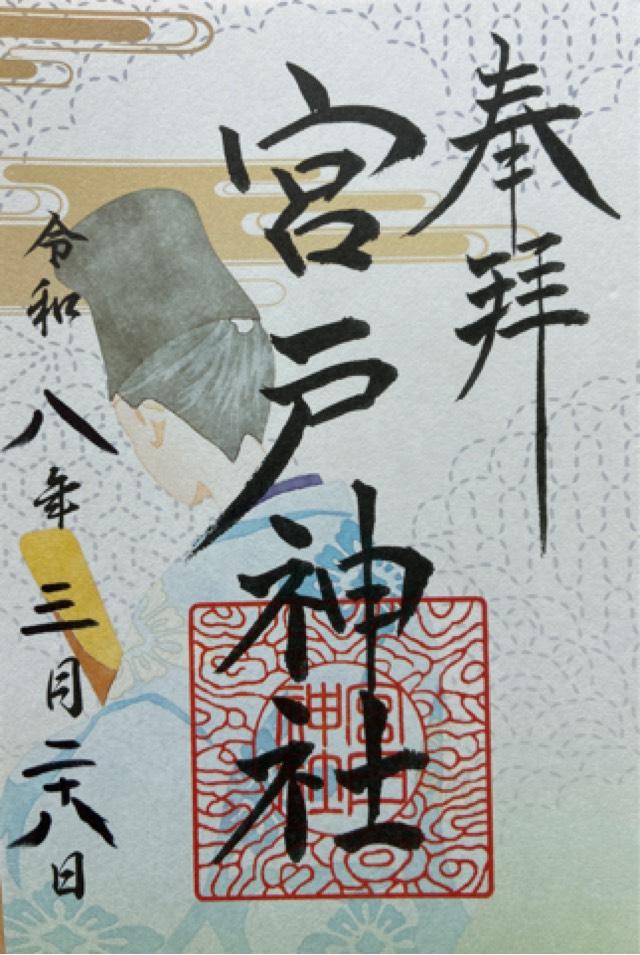 奉拝
宮戸神社
宮戸
神社
令和八年三月二十八日